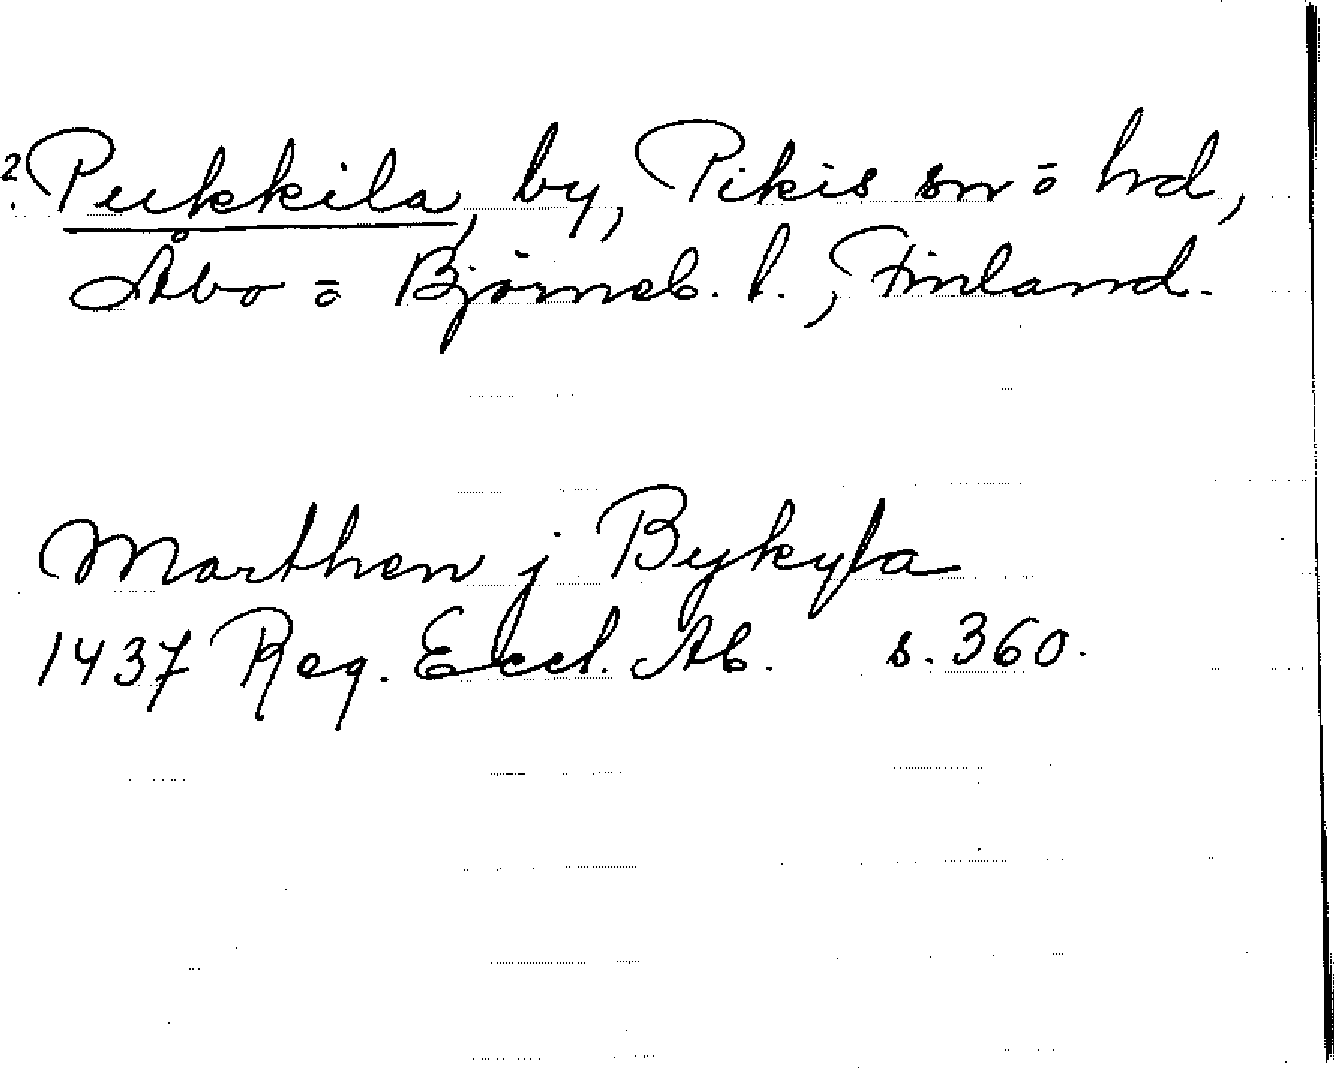 2. Pukkila, by, Pikis sn o hd,
Åbo o Björneb. l., Finland.
Marthen j Bykyla
1437 Reg. Eccl. Ab. s. 360.